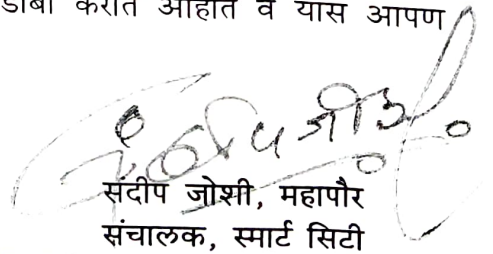 करीत आहात व यास आपण
संदीप जोशी
संदीप जोशी, महापौर
संचालक, स्मार्ट सिटी